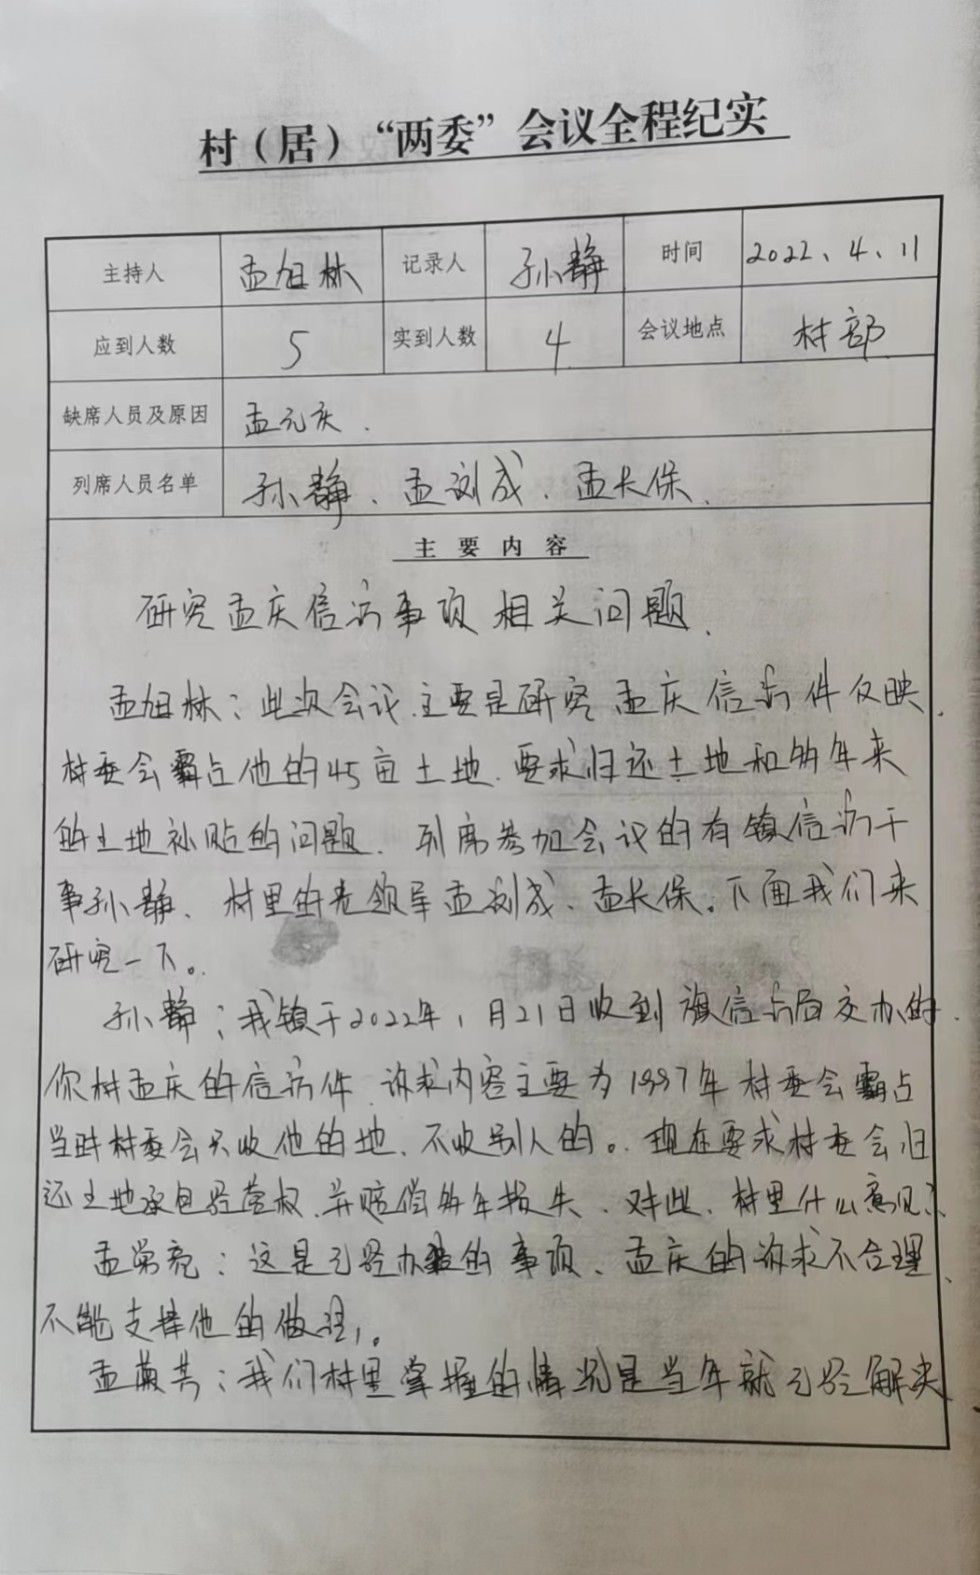 村（居）“两委”会议全程纪实
主持人 孟旭林 记录人 孙静 时间 2022、4、11
应到人数 5 实到人数 4 会议地点 村部
缺席人员及原因 孟元庆.
列席人员名单 孙静、孟浏成、孟长保.
主要内容
研究孟庆信访事项相关问题.
孟旭林：此次会议主要是研究孟庆信访件反映
村委会霸占他的45亩土地、要求归还土地和多年来
的土地补贴的问题. 列席参加会议的有镇信访干
事孙静、村里的老领导孟浏成、孟长保。下面我们来
研究一下。
孙静：我镇于2022年1月21日收到旗信访局交办的
你村孟庆的信访件 诉求内容主要为1997年村委会霸占
当时村委会只收他的地、不收别人的。现在要求村委会归
还土地承包经营权、并赔偿多年损失、对此、村里什么意见？
孟常亮：这是已经办结的事项、孟庆的诉求不合理、
不能支持他的做法。
孟 芳：我们村里掌握的情况是当年就已经解决